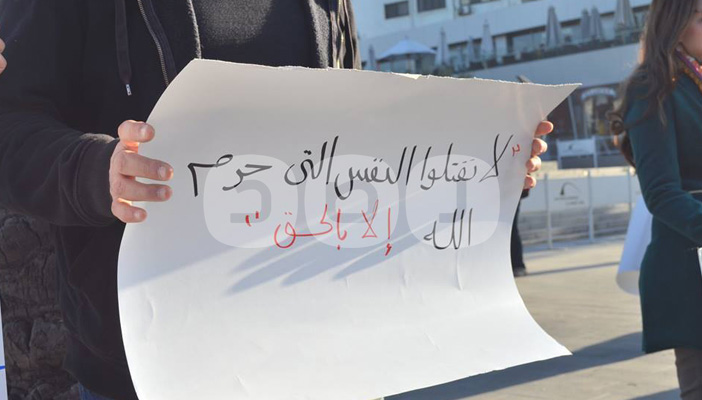 " لا تقتلوا النفس التي حرم
الله إلا بالحق "